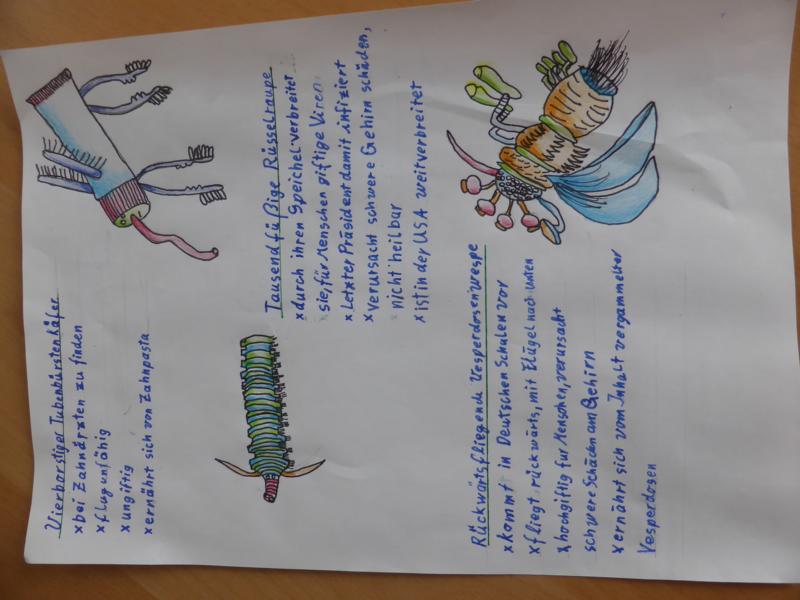 Vierborstiger Tubenbürstenkäfer
x bei Zahnärzten zu finden
x flugunfähig
x ungiftig
x ernährt sich von Zahnpasta
Tausendfüßige Rüsselraupe
x durch ihren Speichel verbreitet
sie, für Menschen giftige Viren
x Letzter Präsident damit infiziert
x verursacht schwere Gehirn schäden,
nicht heilbar
x ist in der USA weitverbreitet
Rückwärtsfliegende Vesperdosenwespe
x kommt in Deutschen Schulen vor
x fliegt rückwärts, mit Flügel nach unten
x hochgiftig für Menschen, verursacht
schwere Schäden am Gehirn
x ernährt sich vom Inhalt vergammelter
Vesperdosen